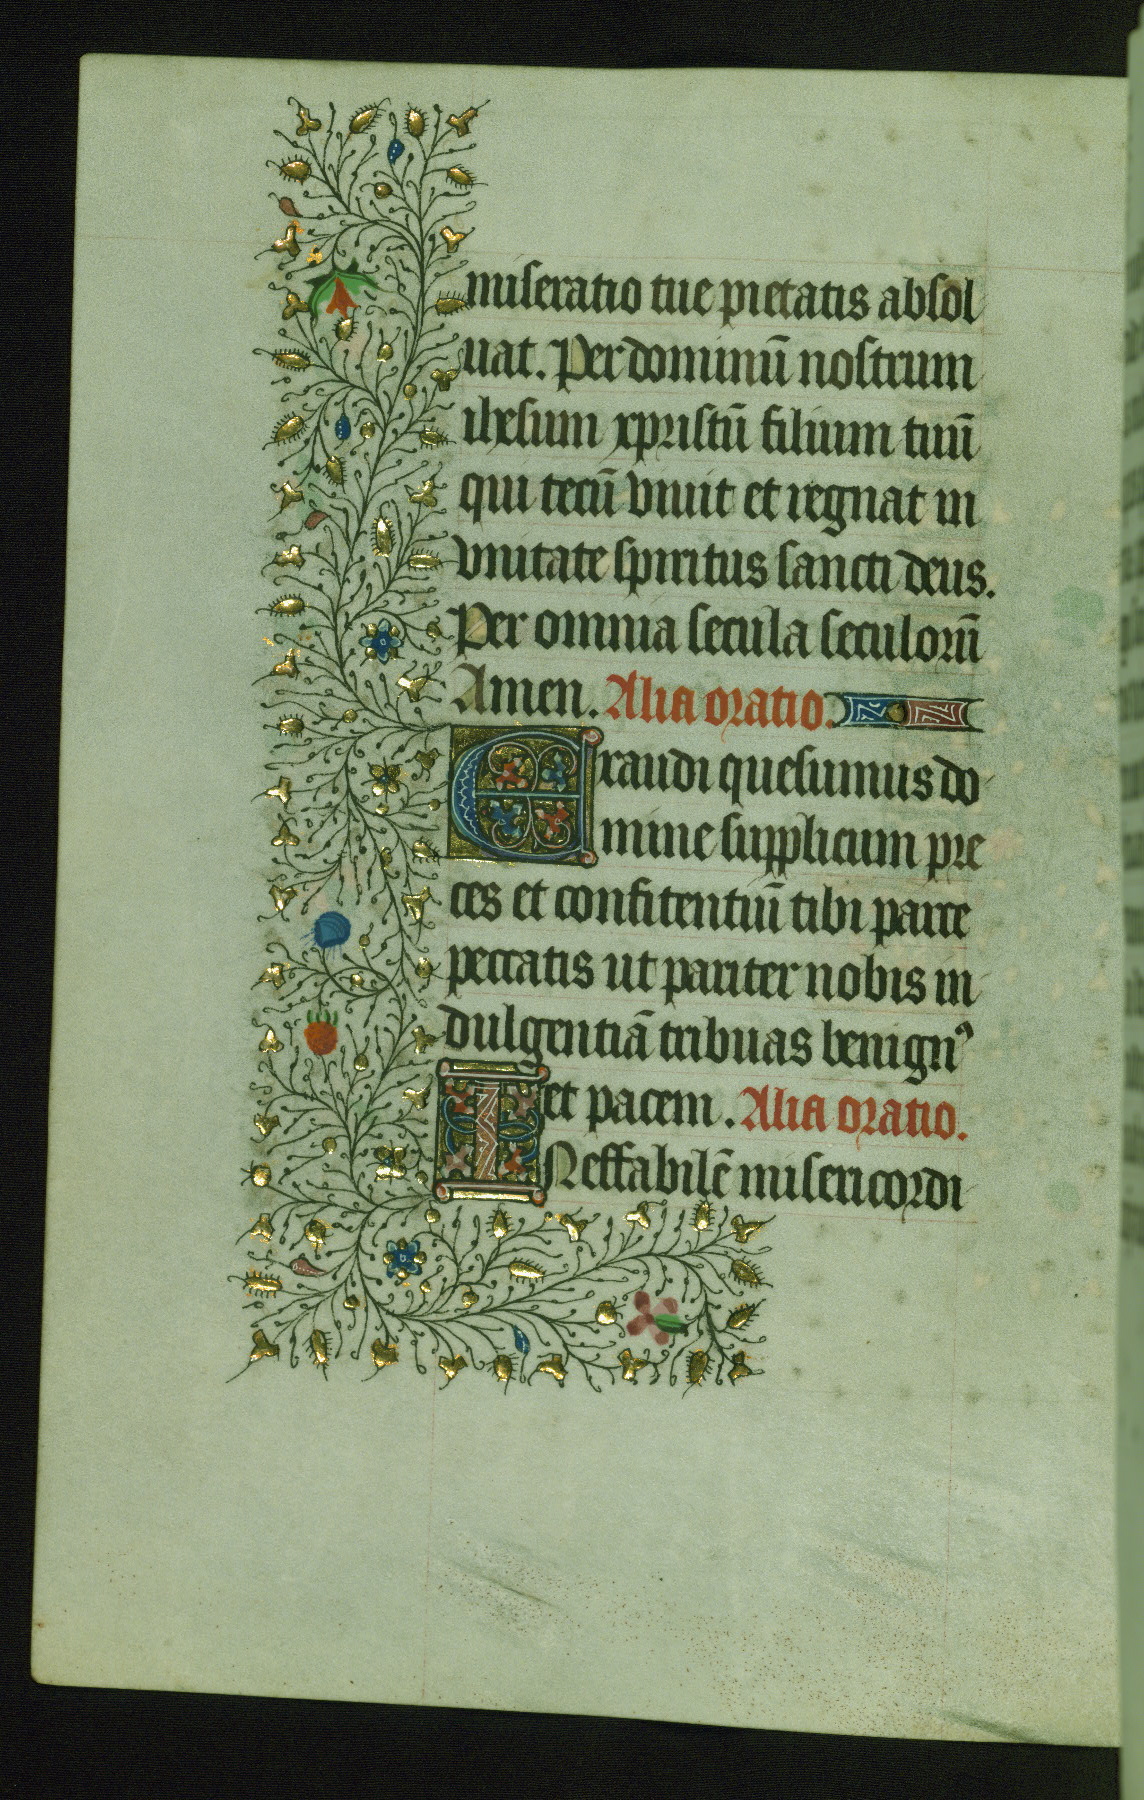 miseratio tue pietatis absol
uat. Per dominū nostrum
ihesum xpristū filium tuū
qui tecū viuit et regnat in
vnitate spiritus sancti deus.
Per omnia secula seculorū
Amen. Alia oratio.
Exaudi quesumus do
mine supplicum pre
ces et confitentiū tibi parce
peccatis ut pariter nobis in
dulgentiā tribuas benignꝯ
et pacem. Alia oratio.
INeffabilē misericordi